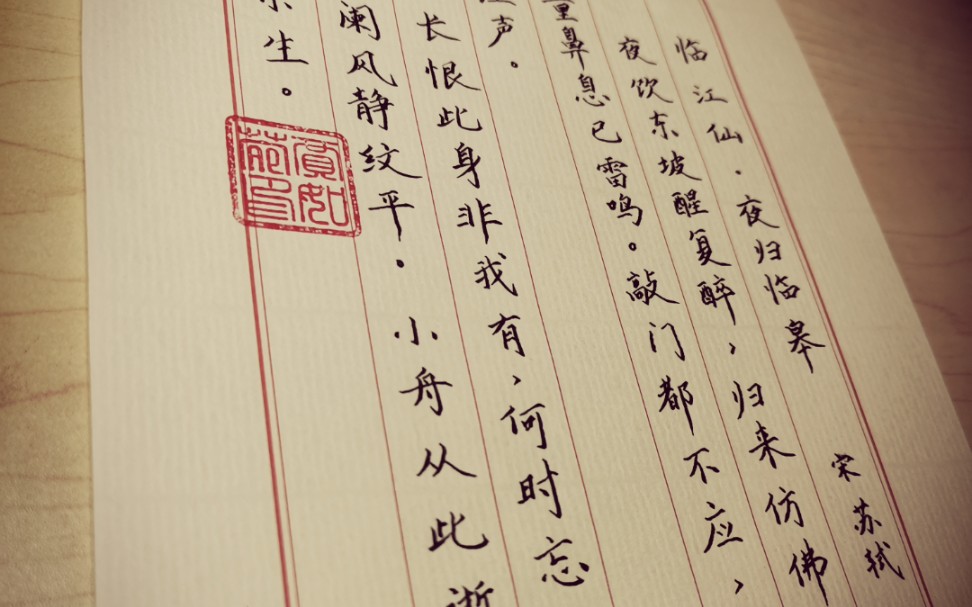 临江仙·夜归临皋 宋 苏轼
夜饮东坡醒复醉，归来仿佛
童鼻息已雷鸣。敲门都不应，
声。
长恨此身非我有，何时忘
阑风静纹平。小舟从此逝
生。